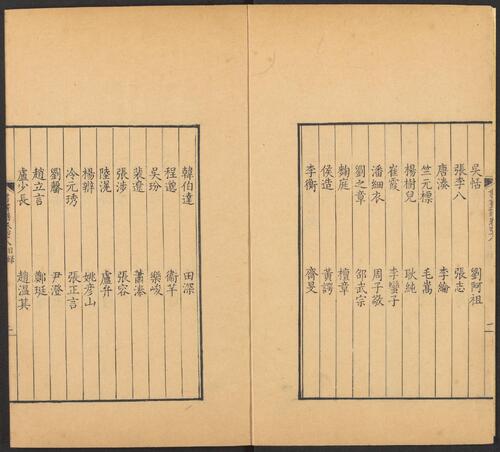 吳恬 劉阿祖
張李八 張志
唐湊 李綸
竺元標 毛嵩
楊樹兒 耿純
崔霞 李蠻子
潘細衣 周子敬
劉之章 邵武宗
麴庭 檀章
侯造 黃諤
李衡 齊旻
韓伯達 田深
程邈 衞芊
吳玢 樂峻
裴遵 蕭溱
張涉 張容
陸滉 盧弁
楊辨 姚彥山
冷元琇 張正言
劉馨 尹澄
趙立言 鄭珽
盧少長 趙溫其